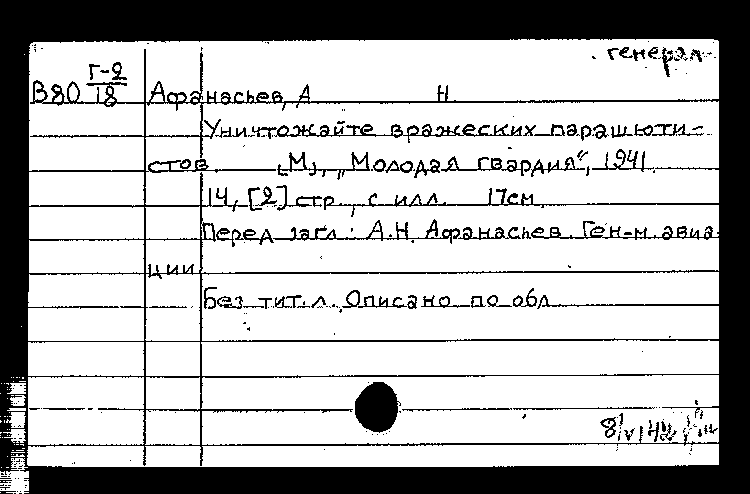 генерал
В80 Г-2/18 Афанасьев, А Н
Уничтожайте вражеских парашюти-
стов. [М], „Молодая гвардия", 1941.
14, [2] стр., с илл. 17см.
Перед загл: А.Н. Афанасьев. Ген-м. авиа
ции.
Без тит. л. Описано по обл
8/VI 42